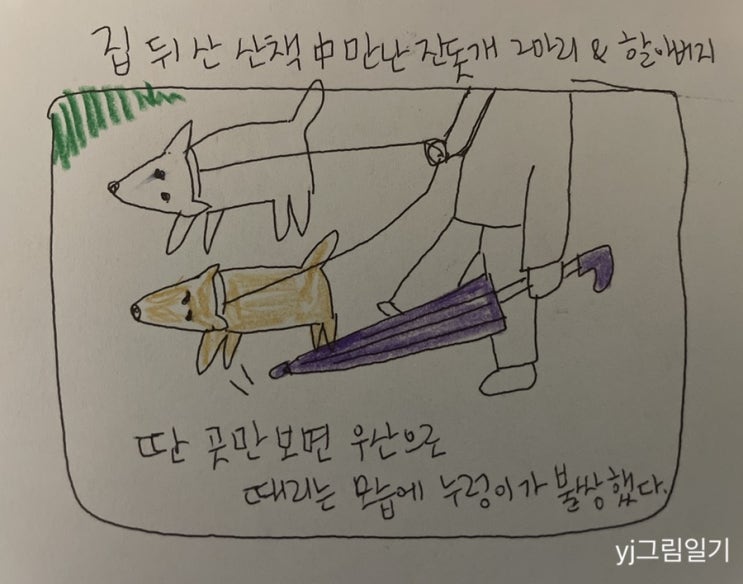 집 뒤 산 산책 中 만난 진돗개 2마리 & 할아버지
딴 곳만 보면 우산으로
때리는 모습에 누렁이가 불쌍했다.
yj그림일기